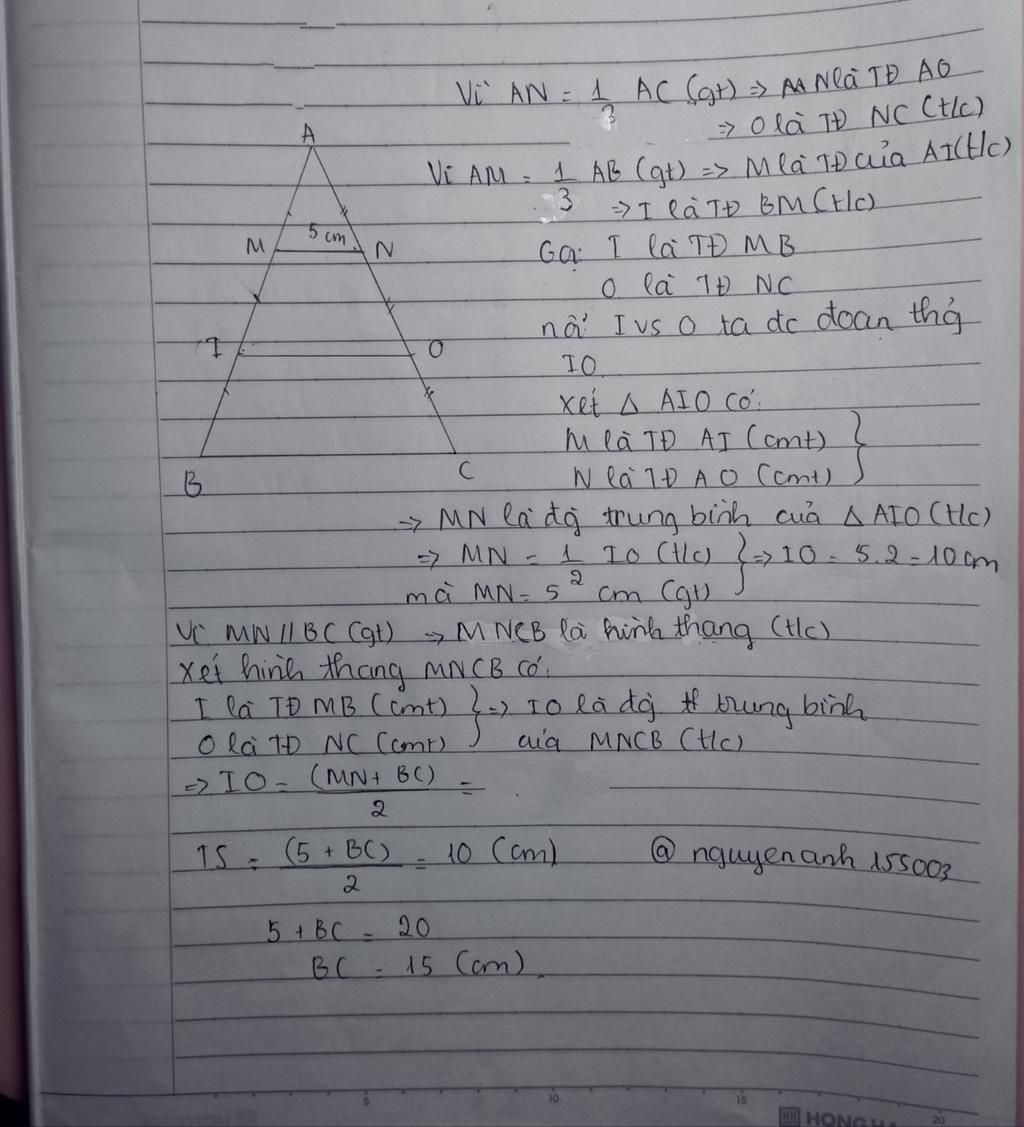 Vì AN = 1/3 AC (gt) => N là TĐ AO
=> O là TĐ NC (t/c)
Vì AM = 1/3 AB (gt) => M là TĐ của AI (t/c)
=> I là TĐ BM (t/c)
Gọi I là TĐ MB
O là TĐ NC
nối I vs O ta đc đoạn thg
IO
xét △ AIO có:
M là TĐ AI (cmt)
N là TĐ AO (cmt)
=> MN là đg trung bình của △ AIO (t/c)
=> MN = 1/2 IO (t/c) } => IO = 5.2 = 10 cm
mà MN = 5 cm (gt)
Vì MN // BC (gt) => MNCB là hình thang (t/c)
xét hình thang MNCB có:
I là TĐ MB (cmt) } => IO là đg trung bình
O là TĐ NC (cmt) của MNCB (t/c)
=> IO = (MN + BC)/2 =
IS = (5 + BC)/2 = 10 (cm)
@ nguyenanh 155003
5 + BC = 20
BC = 15 (cm)
A
M 5 cm N
I O
B C
5 10 15 20